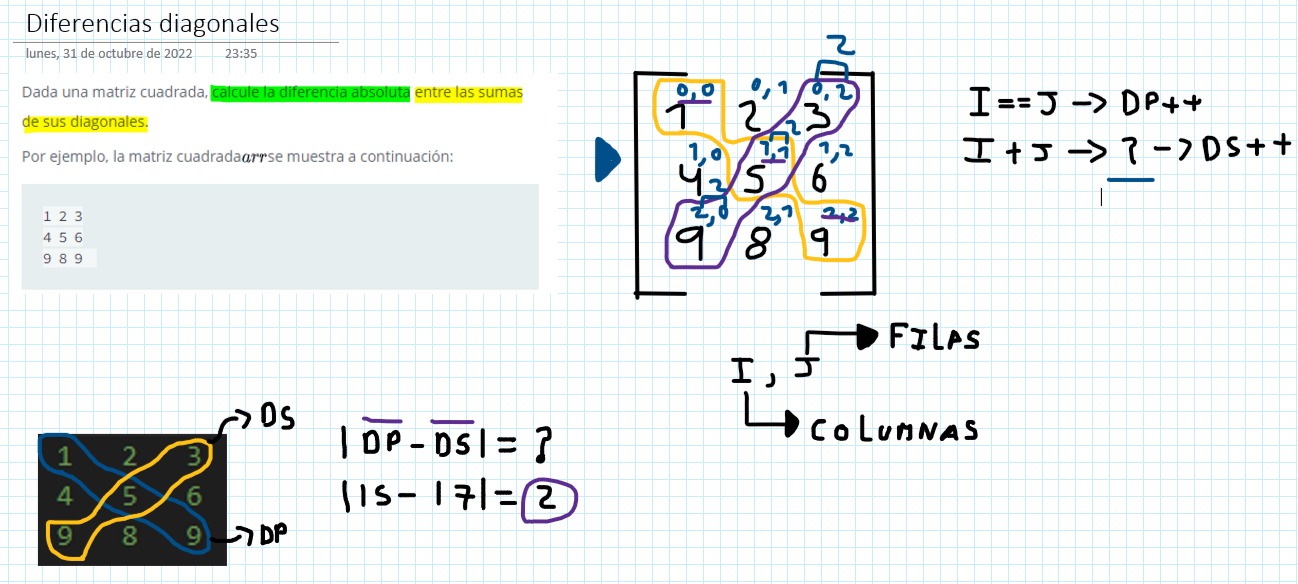 Diferencias diagonales
lunes, 31 de octubre de 2022 23:35
Dada una matriz cuadrada, calcule la diferencia absoluta entre las sumas
de sus diagonales.
Por ejemplo, la matriz cuadrada arr se muestra a continuación:
1 2 3
4 5 6
9 8 9
2
0,0 0,1 0,2
1 2 3
2
1,0 1,1 1,2
4 5 6
2
2,0 2,1 2,2
9 8 9
I==J -> DP++
I+J -> ? -> DS++
FILAS
I, J
COLUMNAS
DS
1 2 3
4 5 6
9 8 9
DP
|DP-DS|=?
|15-17|=2